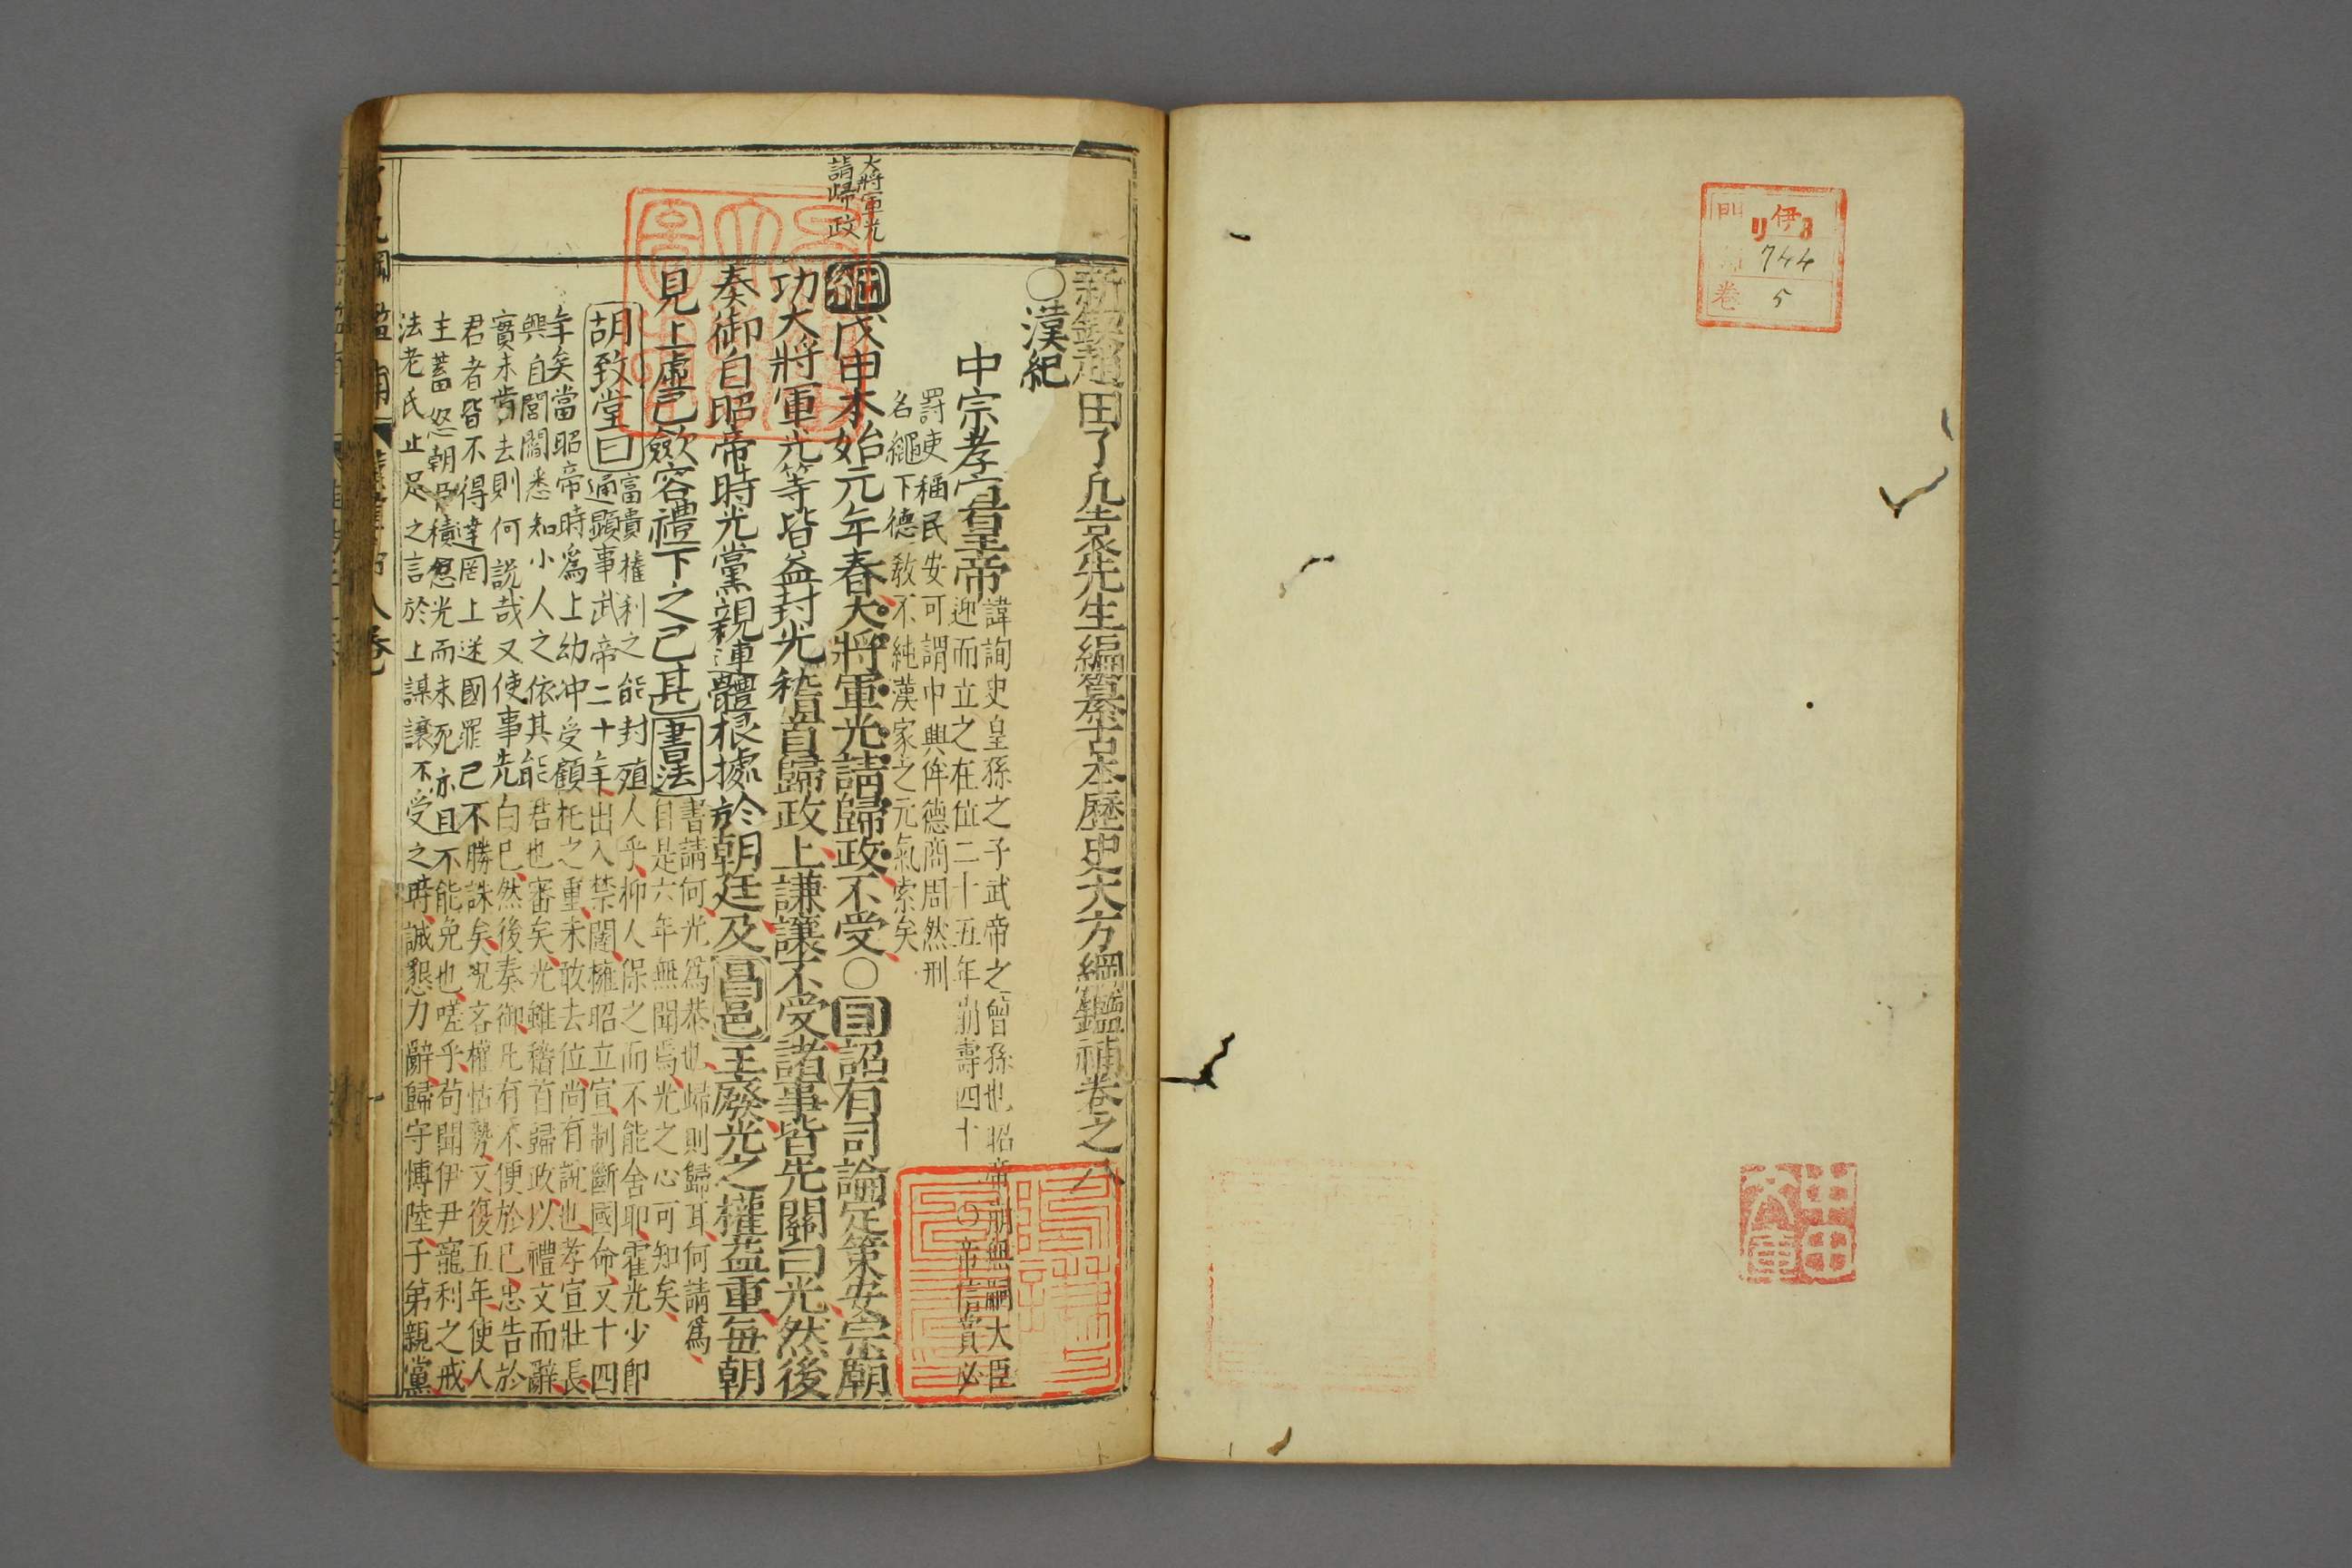 門 伊リ8
744
卷 5
新鐫趙田了凡袁先生編纂古本歷史大方綱鑑補卷之八
○漢紀
中宗孝宣皇帝
諱詢史皇孫之子武帝之曾孫也昭帝崩無嗣大臣
迎而立之在位二十五年崩壽四十○帝信賞必
罰吏稱民安可謂中興侔德商周然刑
名繩下德教不純漢家之元氣索矣
大將軍光
請歸政
綱戊申本始元年春大將軍光請歸政不受○目詔有司論定策安宗廟
功大將軍光等皆益封光稽首歸政上謙讓不受諸事皆先關白光然後
奏御自昭帝時光黨親連體根據於朝廷及昌邑王廢光之權益重每朝
見上虛己斂容禮下之已甚書法
書請何光為恭也歸則歸耳何請爲
自是六年無聞焉光之心可知矣
胡致堂曰
富貴權利之能封殖人乎抑人保之而不能舍耶霍光少即
通顯事武帝二十年出入禁闥擁昭立宣制斷國命又十四
年矣當昭帝時爲上幼冲受顧托之重未敢去位尚有說也孝宣壯長
興自閭閻悉知小人之依其能君也審矣光雖稽首歸政以禮文而辭
實未肯去則何說哉又使事先白已然後奏御凡有不便於已忠告於
君者皆不得達罔上迷國罪已不勝誅矣况吝權怙勢又復五年使人
主蓄怒朝臣積怨光而未死亦且不能免也嗟乎苟聞伊尹寵利之戒
法老氏止足之言於上謀讓不受之時誠懇力辭歸守博陸子弟親黨